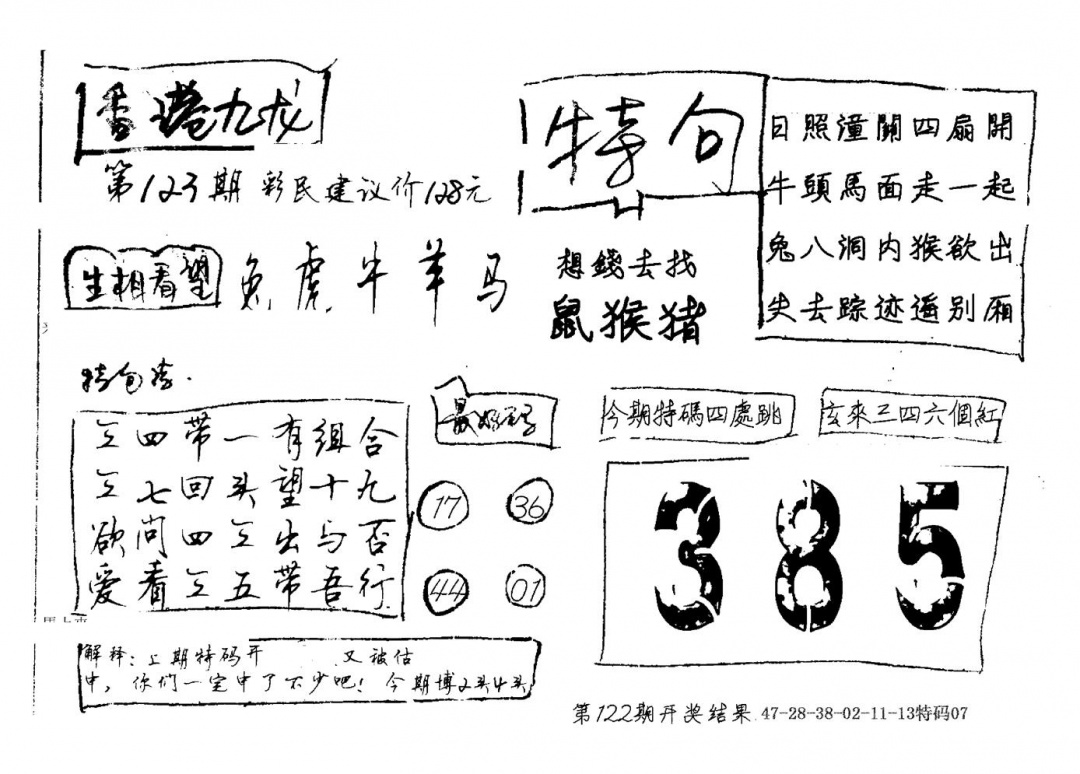 香港九龙
第123期 彩民建议价128元
特句
日照潼關四扇開
牛頭馬面走一起
兔八洞内猴欲出
失去踪迹遁别厢
生相看望
兔虎牛羊马
想錢去找
鼠猴猪
特包
二四带一有组合
二七回头望十九
欲问四二出与否
爱看二五带吾行
17
36
44
01
今期特碼四處跳
玄來三四六個紅
385
解释:上期特码开 又被估
中,你们一定中了不少吧!今期博2头4头
第122期开奖结果 47-28-38-02-11-13特码07